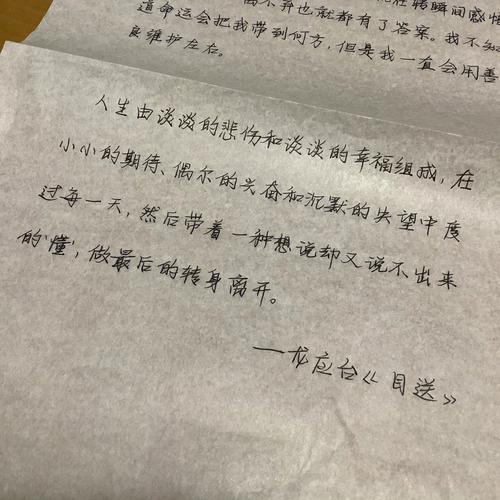 在转瞬间感悟
弃也就都有了答案。我不知
道命运会把我带到何方,但是我一直会用善
良维护左右。
人生由谈谈的悲伤和谈谈的幸福组成,在
小小的期待、偶尔的兴奋和沉默的失望中度
过每一天,然后带着一种想说却又说不出来
的'懂',做最后的转身离开。
—龙应台《目送》